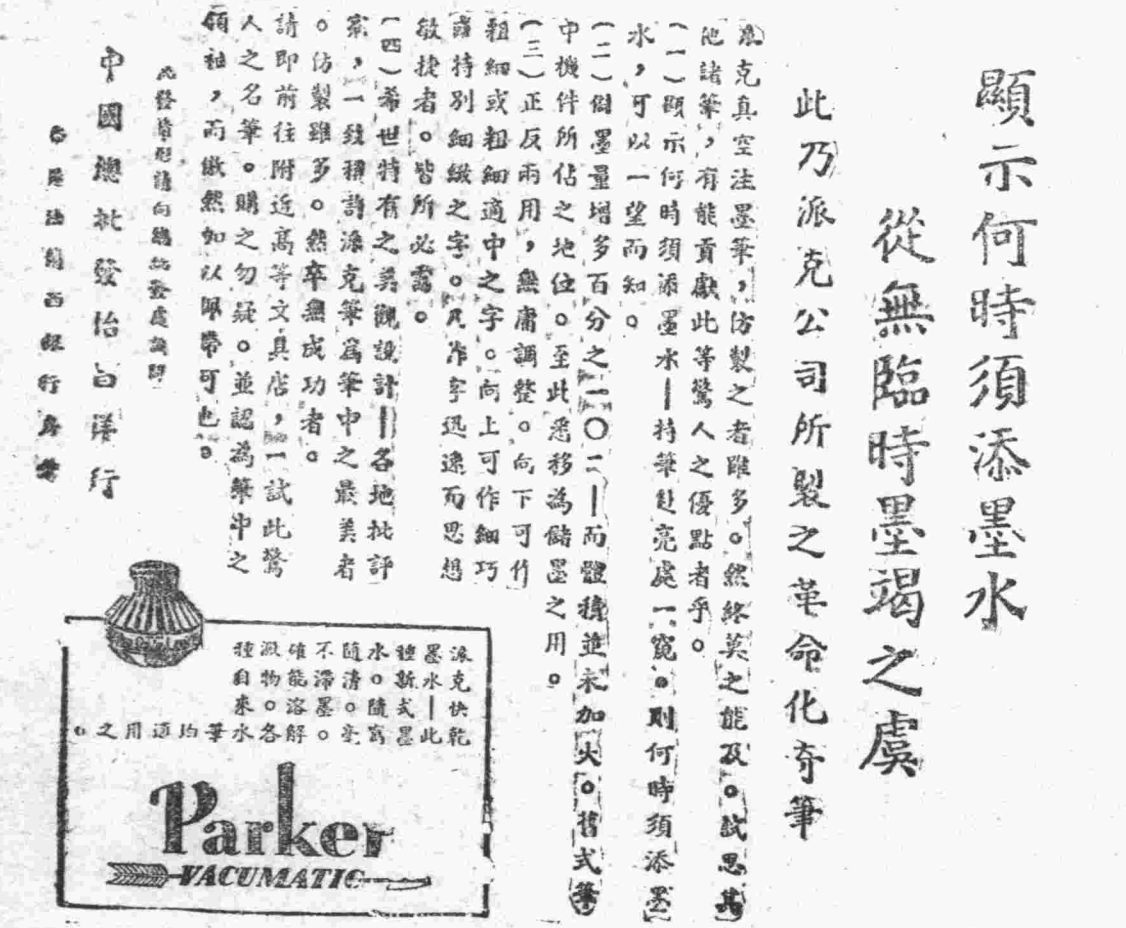 顯示何時須添墨水
從無臨時墨竭之虞
此乃派克公司所製之革命化奇筆
派克真空注墨筆，仿製之者雖多。然終莫之能及。試思其
他諸筆，有能貢獻此等驚人之優點者乎。
（一）顯示何時須添墨水—持筆對亮處一窺。則何時須添墨
水，可以一望而知。
（二）儲墨量增多百分之一〇二—而體積並未加大。舊式筆
中機件所佔之地位。至此悉移為儲墨之用。
（三）正反兩用，無庸調整。向下可作
粗細或粗細適中之字。向上可作細巧
或特別細緻之字。凡作字迅速而思想
敏捷者。皆所必需。
（四）希世特有之美觀設計—各地批評
家，一致稱許派克筆為筆中之最美者
。仿製雖多。然卒無成功者。
請即前往附近高等文具店，一試此驚
人之名筆。購之勿疑。並認為筆中之
領袖，而傲然如以佩帶可也。
中國總批發怡昌洋行
派克快乾
墨水—此
種新式墨
水。隨寫
隨清。毫
不滯墨。
確能溶解
澱物。各
種自來水筆均適用之。
Parker
VACUMATIC